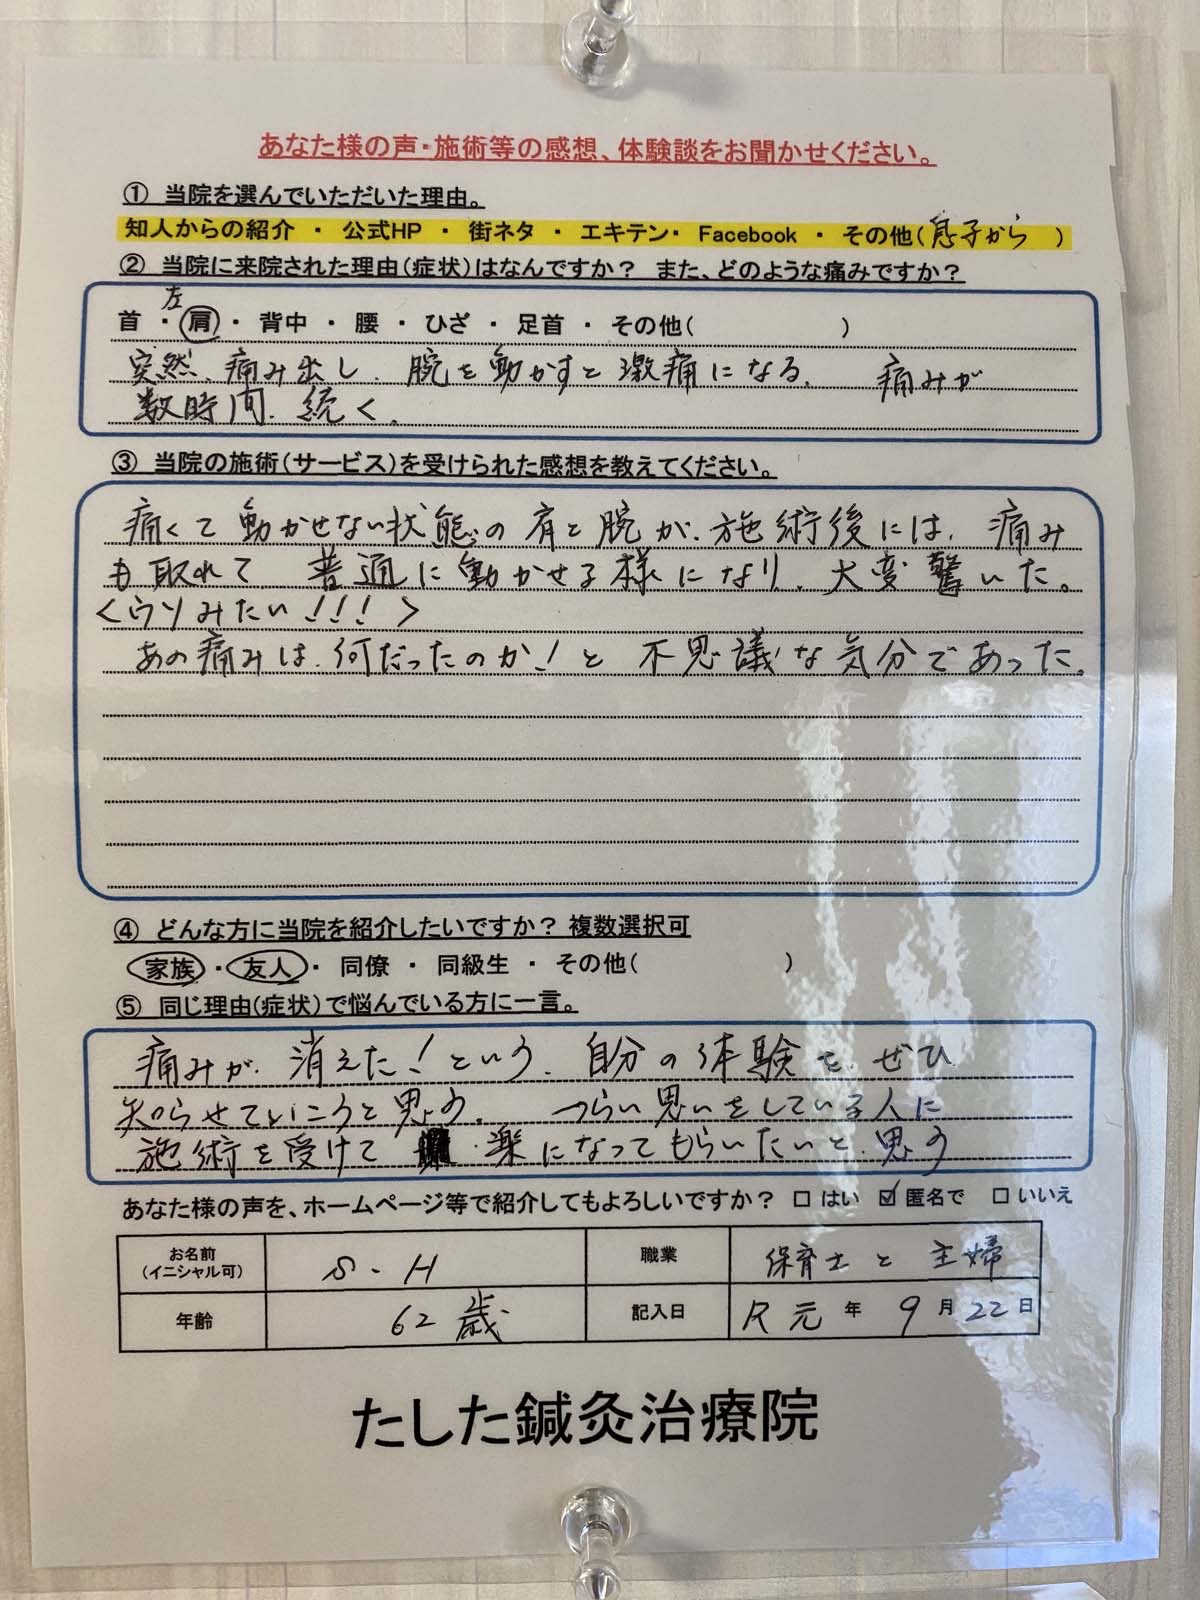 あなた様の声・施術等の感想、体験談をお聞かせください。
① 当院を選んでいただいた理由。
知人からの紹介 ・ 公式HP ・ 街ネタ ・ エキテン・ Facebook ・ その他(息子から )
② 当院に来院された理由(症状)はなんですか? また、どのような痛みですか?
左
首 ・ 肩 ・ 背中 ・ 腰 ・ ひざ ・ 足首 ・ その他( )
突然、痛み出し、腕を動かすと激痛になる。 痛みが
数時間、続く。
③ 当院の施術(サービス)を受けられた感想を教えてください。
痛くて動かせない状態の肩と腕が、施術後には、痛み
も取れて 普通に動かせる様になり、大変驚いた。
<ウソみたい!!!>
あの痛みは、何だったのか!と 不思議な気分であった。
④ どんな方に当院を紹介したいですか? 複数選択可
家族 ・ 友人 ・ 同僚 ・ 同級生 ・ その他( )
⑤ 同じ理由(症状)で悩んでいる方に一言。
痛みが、消えた!という、自分の体験を、ぜひ
知らせていこうと思う。 つらい思いをしている人に
施術を受けて 楽になってもらいたいと、思う
あなた様の声を、ホームページ等で紹介してもよろしいですか? □ はい ☑ 匿名で □ いいえ
お名前 (イニシャル可) S・H 職業 保育士と主婦
年齢 62歳 記入日 R元年 9月22日
たした鍼灸治療院